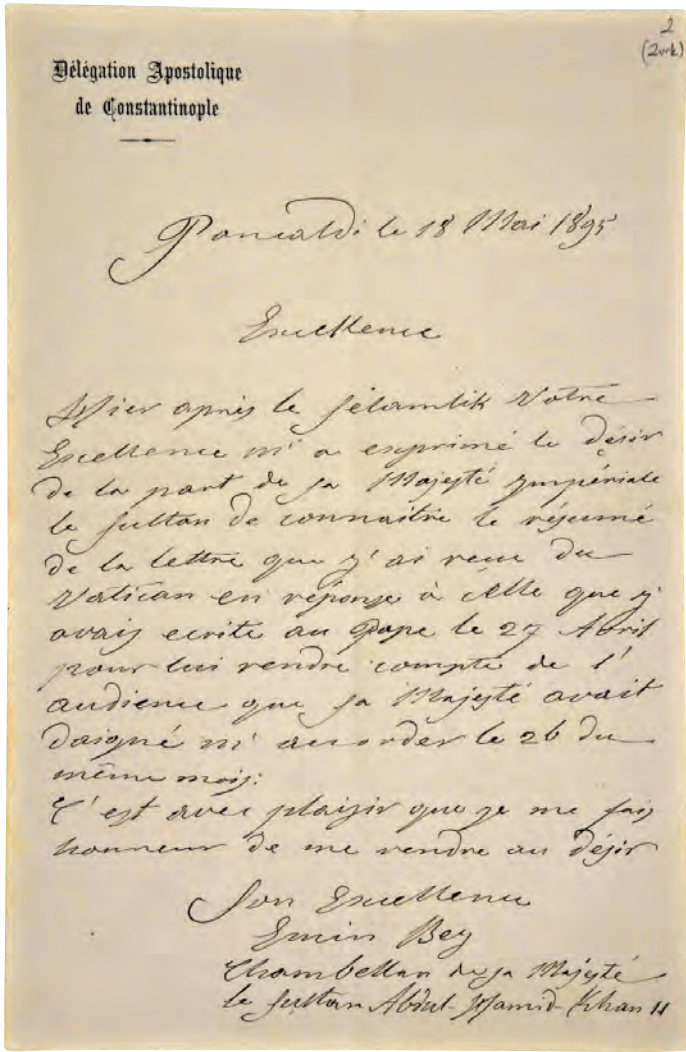 2
(2vrk)
Délégation Apostolique
de Constantinople
Pancaldi le 18 Mai 1895
Excellence
Hier après le sélamlik Votre
Excellence m'a exprimé le désir
de la part de sa Majesté Impériale
le sultan de connaitre le résumé
de la lettre que j'ai recue du
Vatican en réponse à celle que j'
avais ecrite au Pape le 27 Avril
pour lui rendre compte de l'
audience que sa Majesté avait
daigné m'accorder le 26 du
même mois.
C'est avec plaisir que je me fais
honneur de me rendre au désir
Son Excellence
Emin Bey
Chambellan de sa Majesté
le sultan Abdul-Hamid-Khan II